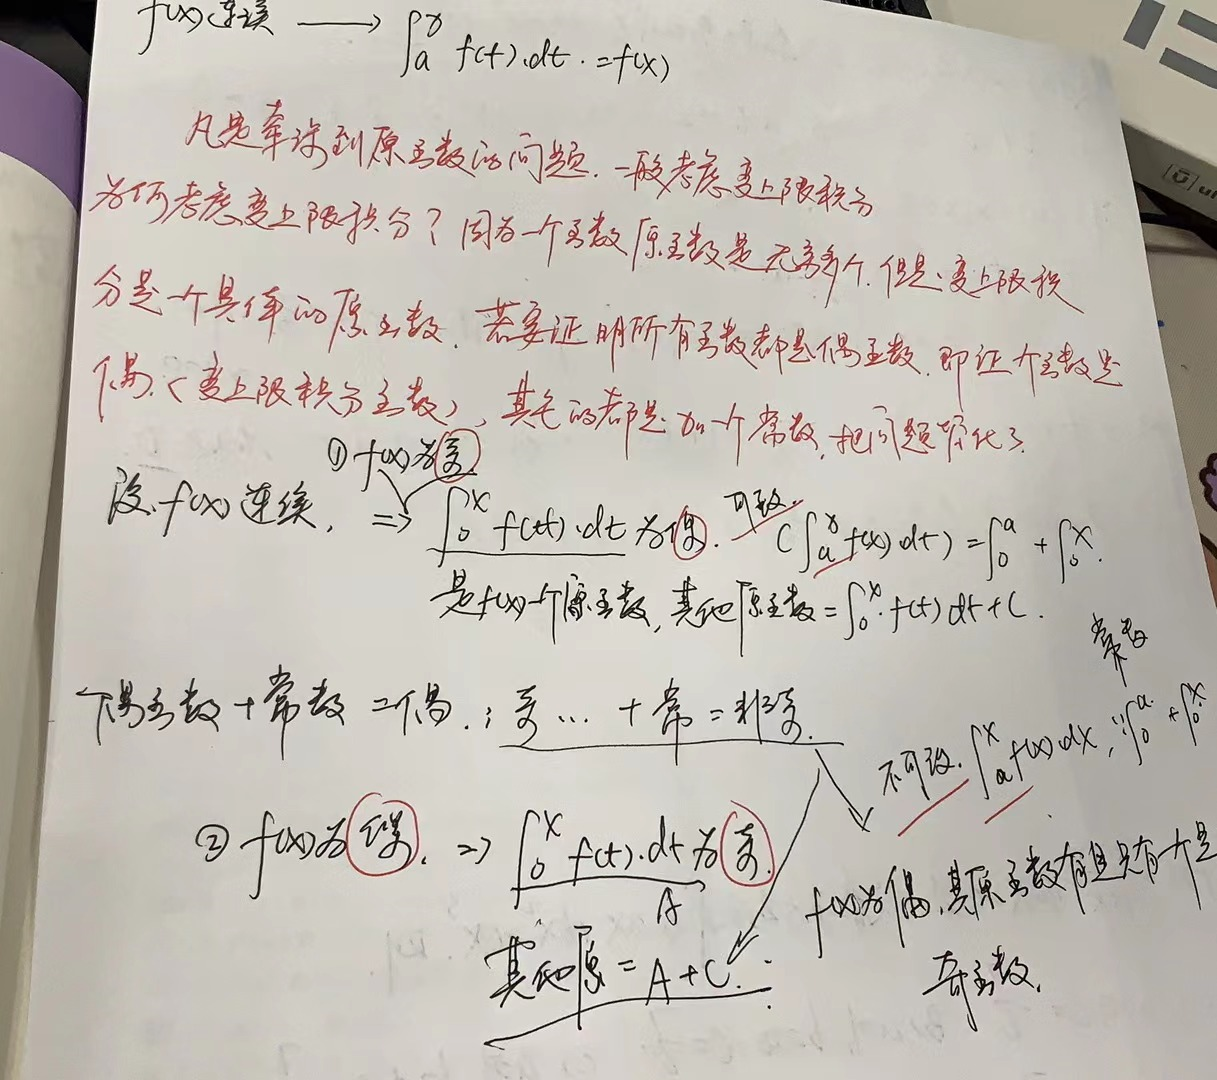 f(x)连续 ⟶ ∫ₐˣ f(t).dt.=f(x)
凡是牵涉到原函数的问题.一般考虑变上限积分
为何考虑变上限积分?因为一个函数原函数是无穷多个.但是变上限积
分是一个具体的原函数.若要证明所有函数都是偶函数.即证个函数是
偶.(变上限积分函数),其它的都是加一个常数.把问题简化了.
① f(x)为奇.
设.f(x)连续, ⇒ ∫₀ˣ f(t).dt为偶. 可改. (∫ₐˣ f(x).dt)=∫₀ᵃ + ∫₀ˣ.
是f(x)一个原函数,其他原函数=∫₀ˣ.f(t)dt+C.
常数
偶函数+常数=偶.;奇…+常=非奇.
不可改.∫ₐˣ f(x).dx, ∵∫₀ᵃ + ∫₀ˣ
② f(x)为偶. ⇒ ∫₀ˣ f(t).dt为奇.
A
f(x)为偶,其原函数有且只有一个是
奇函数.
其他原=A+C.